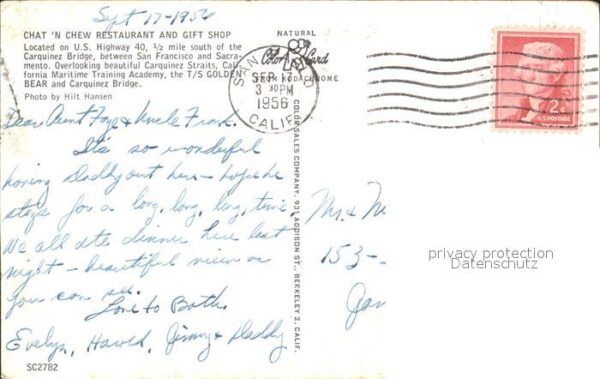 Sept 17-1956
CHAT 'N CHEW RESTAURANT AND GIFT SHOP
Located on U.S. Highway 40, ½ mile south of the
Carquinez Bridge, between San Francisco and Sacra-
mento. Overlooking beautiful Carquinez Straits, Cal-
ifornia Maritime Training Academy, the T/S GOLDEN
BEAR and Carquinez Bridge.
Photo by Hilt Hansen
NATURAL
Color Card
FROM KODACHROME
SAN PABLO
SEP 17
3 30 PM
1956
CALIF.
2¢
U.S. POSTAGE
Dear Aunt Faye & Uncle Frank.
It's so wonderful
having Daddy out here - hope he
stays for a long, long, long, time.
We all ate dinner here last
night - beautiful view as
you can see.
Love to Both.
Evelyn, Harold, Jimmy & Daddy
SC2782
COLOR SALES COMPANY. 931 ADDISON ST., BERKELEY 2, CALIF.
Mr. &
153-
privacy protection
Datenschutz